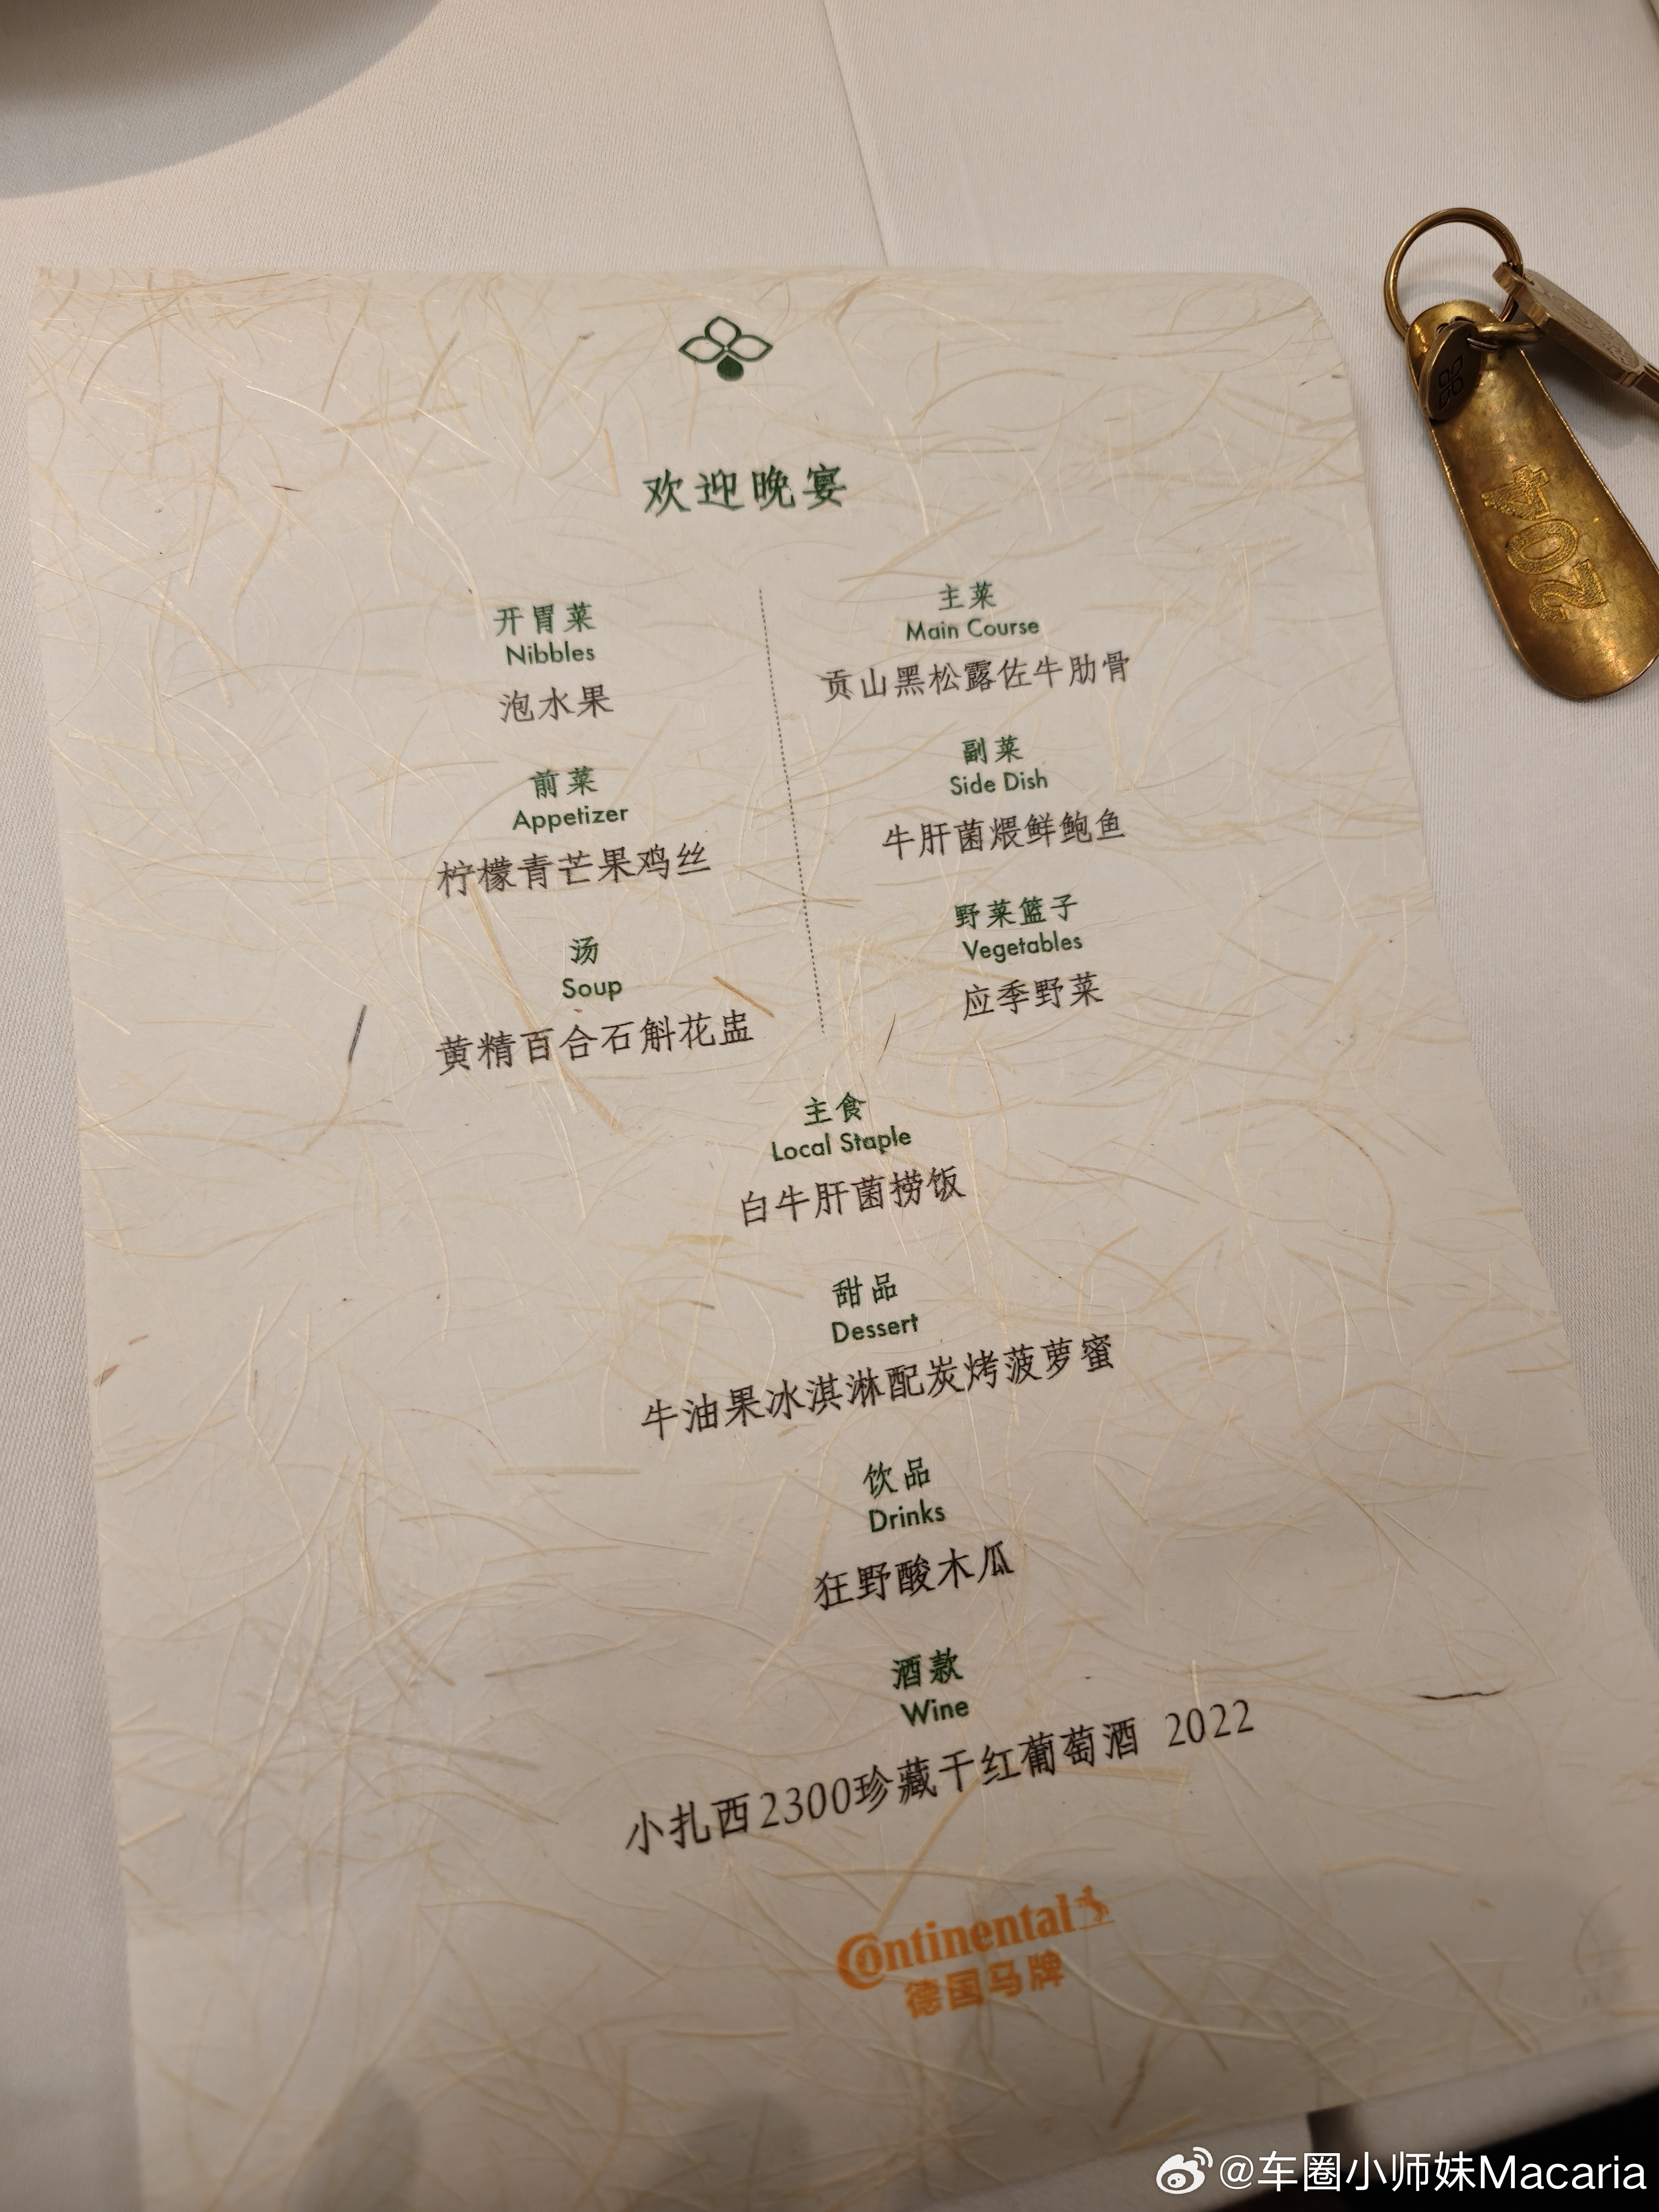 欢迎晚宴
开胃菜
Nibbles
泡水果
前菜
Appetizer
柠檬青芒果鸡丝
汤
Soup
黄精百合石斛花盅
主菜
Main Course
贡山黑松露佐牛肋骨
副菜
Side Dish
牛肝菌煨鲜鲍鱼
野菜篮子
Vegetables
应季野菜
主食
Local Staple
白牛肝菌捞饭
甜品
Dessert
牛油果冰淇淋配炭烤菠萝蜜
饮品
Drinks
狂野酸木瓜
酒款
Wine
小扎西2300珍藏干红葡萄酒 2022
Continental
德国马牌
204
@车圈小师妹Macaria